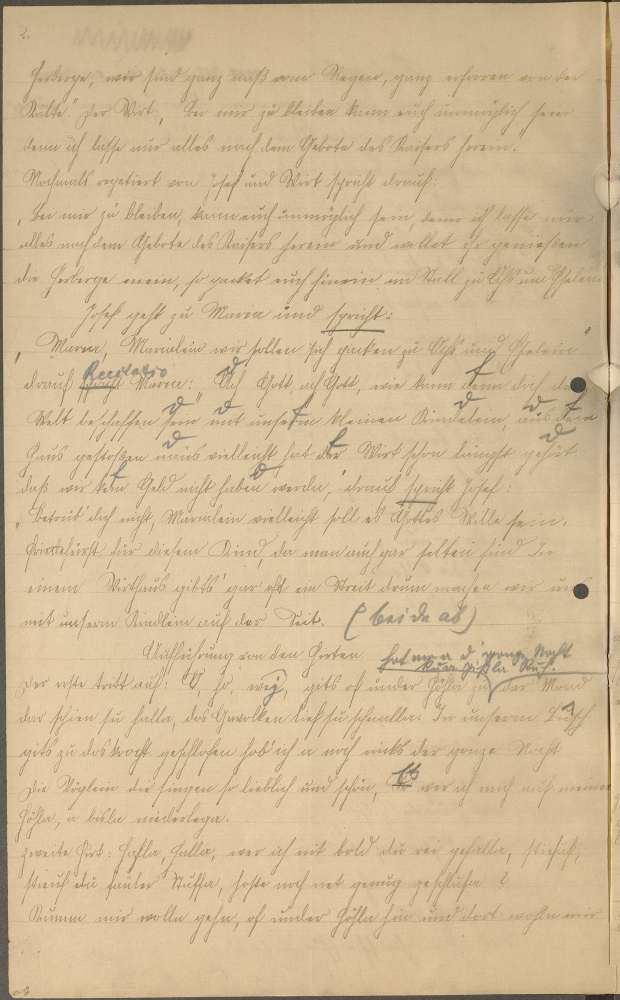 2.
Herberge, wir sind ganz naß vom Regen, ganz erfroren von der
Kälte." Der Wirt: "Bei mir zu bleiben kann euch unmöglich sein
denn ich lasse nur alles nach dem Gebote des Kaisers herein.
Nochmals repetiert von Josef und Wirt spricht drauf:
"Bei mir zu bleiben, kann euch unmöglich sein, denn ich lasse nur
alles nach dem Gebote des Kaisers herein und wollet ihr genießen
die Herberge mein, so packet euch hinein im Stall zu Ochs und Eselein
Josef geht zu Maria und spricht:
"Maria, Mariälein wir sollen sich packen zu Ochs und Eselein"
drauf Recitatio Maria: "Ach Gott, ach Gott, wie kann denn doch die
Welt beschaffen sein" mit unserm kleinen Kindelein, aus dem
Haus gestoßen vielleicht hat der Wirt schon längst gehört
daß wir kein Geld nicht haben werden, "drauf spricht Josef:
"Betrüb' dich nicht, Mariälein vielleicht soll es Gottes Wille sein.
für diesem Kind, da man auch gar selten find In
einem Wirthaus gibts' gar oft ein Streit drum machen wir uns
mit unserm Kindlein auf der Seit. (beide ab)
Aufführung von den Hirten hot mer a d' ganze Nacht
Der erste tritt auf: O, ho, gits of under Höhla zu der Mond
dar schien su halla, dos Gewolken lief su schnalla: In unserm Busch
gits zu geschlofen hob' ich a noch nicks der ganze Nacht
Die Vöglein die singen so lieblich und schön, wer ich mich auf meine
Höhla, a bisla niederlega.
zweite Hirt: Halla, wer ich nit bold du rei gefalla,
du fauler hoste noch net genug geschlufa?
Kumm mir wolla gehn, of under Höhla hin und dort wolln mir